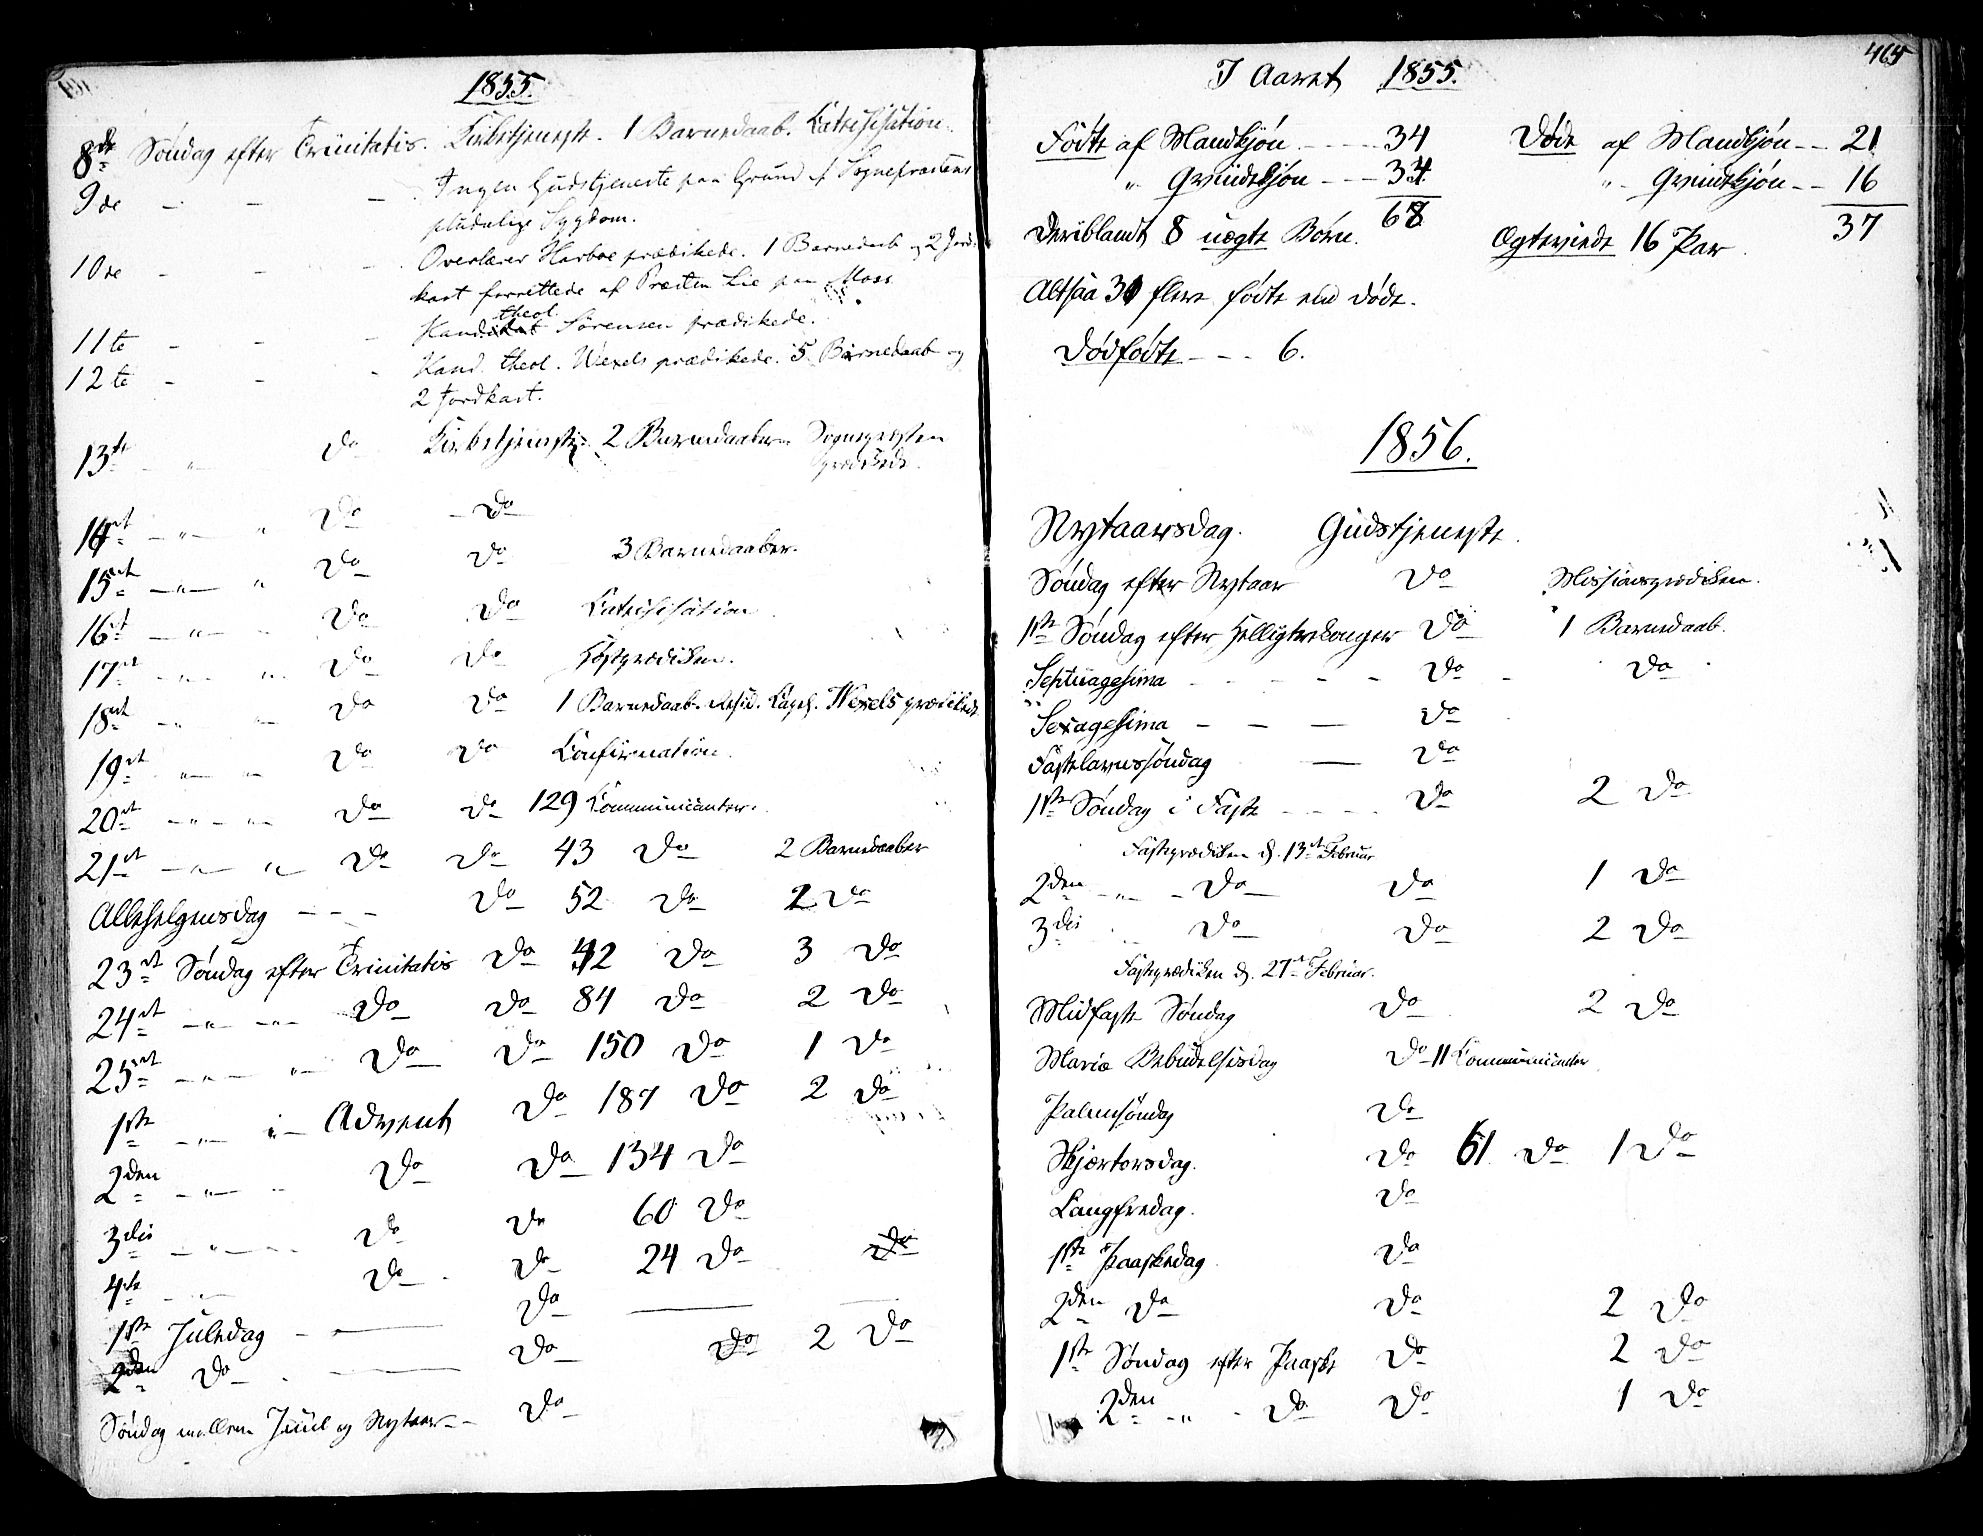 1855.
8de Søndag efter Trinitatis. Kirketjeneste. 1 Barnedaab. Katechisation.
9de - - - Ingen Gudstjeneste paa Grund af Sognepræstens
pludselige Sygdom.
10de - - - Overlærer Harboe prædikede. 1 Barnedaab og 2 Jord-
kast forrettede af Præsten Lie paa Moss
11te - - - Kandidat theol. Sörensen prædikede.
12te - - - Kand. theol. Wexels prædikede. 5 Barnedaab og
2 Jordkast.
13de - " - do Kirketjeneste 2 Barnedaaber Sognepræsten
prædikede.
14de - " - " do - do
15de - " - " do do 3 Barnedaaber.
16de - " - " do do Katechisation
17de - " - " do do Høstprædiken.
18de - " - " do do 1 Barnedaab. Resid. Kapel. Wexels prædikede
19de - " - " do do Konfirmation.
20de - " - " do do 129 Kommunicanter.
21de - " - " do do 43 do 2 Barnedaaber
Allehelgensdag - - - do 52 do 2 do
23de Søndag efter Trinitatis do 42 do 3 do
24de - " - " - do do 84 do 2 do
25de - " - " do do 150 do 1 do
1ste - " - i - Advent do 187 do 2 do
2den - " - - do do 134 do
3die - " - - do do 60 do
4de - - do do 24 do do
1ste Juledag - — do
2den do - — do do 2 do
Søndag mellem Juul og Nytaar - - do
465
I Aaret 1855.
Födte af Mandkjøn - - - 34 Døde af Mandkjøn - - 21
" Qvindekjøn - - - 34 " - Qvindekjøn - - 16
68 37
Deriblandt 8 uægte Børn. Ægteviede 16 Par.
Altsaa 31 flere födte end døde.
Dødfödte - - - 6.
1856.
Nytaarsdag. Gudstjeneste.
Søndag efter Nytaar do Missionsprædiken.
1ste Søndag efter Helligtrekonger do 1 Barnedaab.
Septuagesima - - - - - do - do
Sexagesima - - — do
Fastelavnssøndag — do
1ste Søndag i Faste - - - - do 2 do
Fasteprædiken d. 13de Februar
2den - " - - do do 1 do
3die - do do 2 do
Fasteprædiken d. 27de Februar.
Midfaste Søndag do 2 do
Mariæ Bebudelsesdag do 11 Kommunicanter
Palmesøndag do
Skjærtorsdag. do 61 do 1 do
Langfredag. do
1ste Paaskedag do
2den do do 2 do
1ste Søndag efter Paaske do 2 do
2den - " - do do 1 do